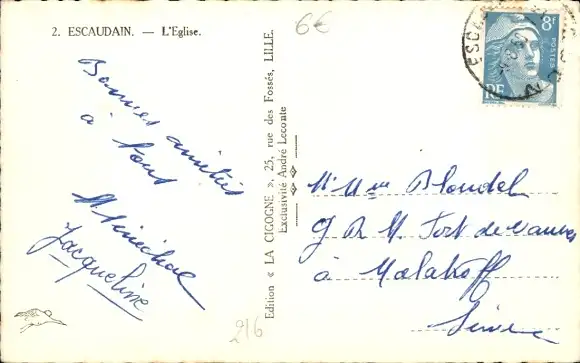 2. ESCAUDAIN. — L'Eglise.
6€
8f
POSTES
RF
Bonnes amitiés
à tous
Jacqueline
Edition « LA CIGOGNE », 25, rue des Fossés, LILLE.
Exclusivité André Leconte
Mme Blondel
Fort de Vanves
à Malakoff
Seine
216